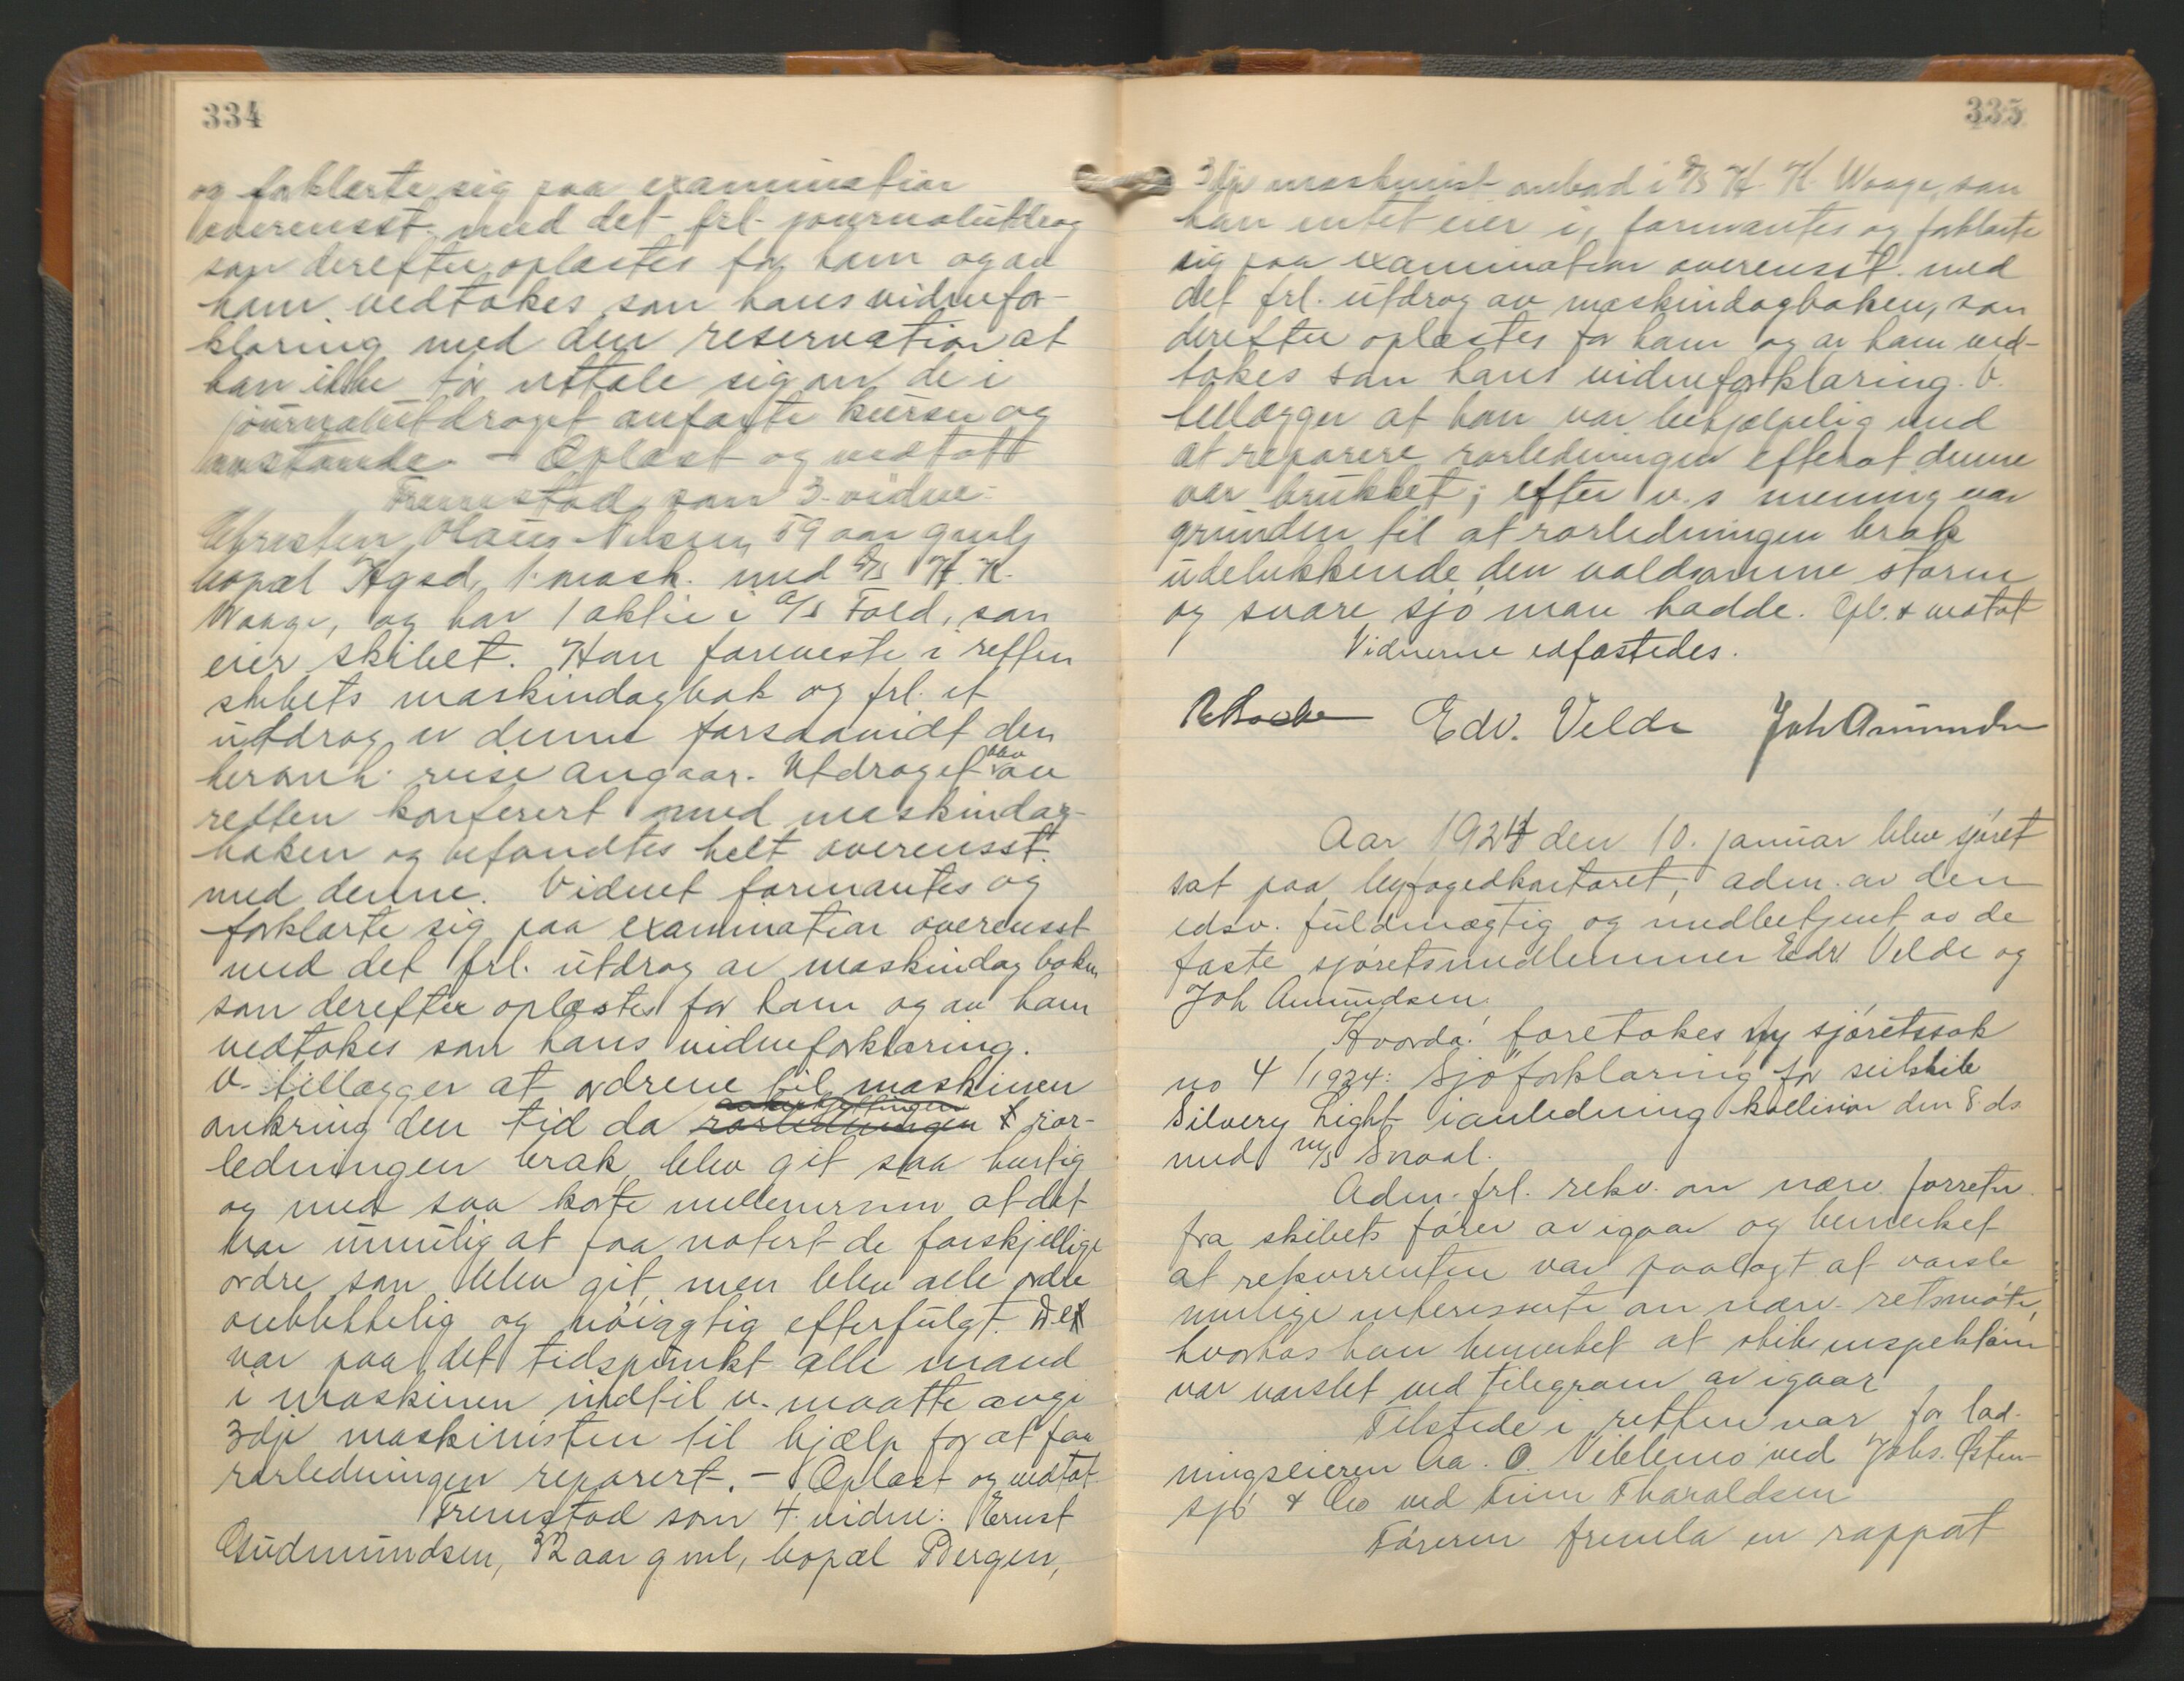 334
og forklarte sig paa examination
overensst. med det frl. journalutdrag
som derefter oplæstes for ham og av
ham vedtokes som hans vidnefor-
klaring med den reservation at
han ikke tør uttale sig om de i
journalutdraget anførte kurser og
avstande. - Oplæst og vedtatt
Fremstod som 3. vidne:
Nilsen, 59 aar gml,
bopæl Hgsd, 1. mask. med D/S H. K.
Waage, og har 1 aktie i A/S Fold, som
eier skibet. Han foreviste i retten
skibets maskindagbok og frl. et
utdrag av denne forsaavidt den
heromh. reise angaar. Utdraget blev av
retten konferert med maskindag-
boken og befandtes helt overensst.
med denne. Vidnet formantes og
forklarte sig paa examination overensst
med det frl. utdrag av maskindagboken
som derefter oplæstes for ham og av ham
vedtokes som hans vidneforklaring.
V. tillægger at ordrene til maskinen
omkring den tid da rorledningen rør-
ledningen brak, blev git saa hurtig
og med saa korte mellemrum at det
var umulig at faa notert de forskjellige
ordre som blev git, men blev alle ordre
øieblikkelig og nøiagtig efterfulgt. Det
var paa det tidspunkt alle mand
i maskinen indtil v. maatte avgi
3dje maskinisten til hjælp for at faa
rorledningen reparert. - Oplæst og vedtat
Fremstod som 4. vidne: Ernst
Gudmundsen, 32 aar gml, bopæl Bergen,
335
3dje maskinist ombord i D/S H. K. Waage, som
han intet eier i, formantes og forklarte
sig paa examination overensst. med
det frl. utdrag av maskindagboken, som
derefter oplæstes for ham og av ham ved-
tokes som hans vidneforklaring. V.
tillægger at han var behjælpelig med
at reparere rorledningen efterat denne
var brukket; efter v.s mening var
grunden til at rorledningen brak
udelukkende den voldsomme storm
og svære sjø man hadde. Opl. & vedtat
Vidnerne edfæstedes.
Edv. Velde Joh Amundsen
Aar 1924 den 10. januar blev sjøret
sat paa byfogedkontoret, adm. av den
edsv. fuldmægtig og medbetjent av de
faste sjøretsmedlemmer Edv Velde og
Joh Amundsen.
Hvorda! foretokes ny sjøretssak
no 4/1924: Sjöforklaring for seilskib
Silvery Light i anledning kollision den 8. ds
med m/s Snaal.
Adm. frl. rekv. om nærv. forretn.
fra skibets fører av igaar og bemerket
at rekvirenten var paalagt at varsle
mulige interesserte om nærv. retsmøte,
hvorhos han bemerket at skibsinspektøren
var varslet ved telegram av igaar
Tilstede i retten var for lad-
ningseieren Aa. O. Viblemo ved Johs. Østen-
sjö & Co ved Finn Tharaldsen
Føreren fremla en rapport